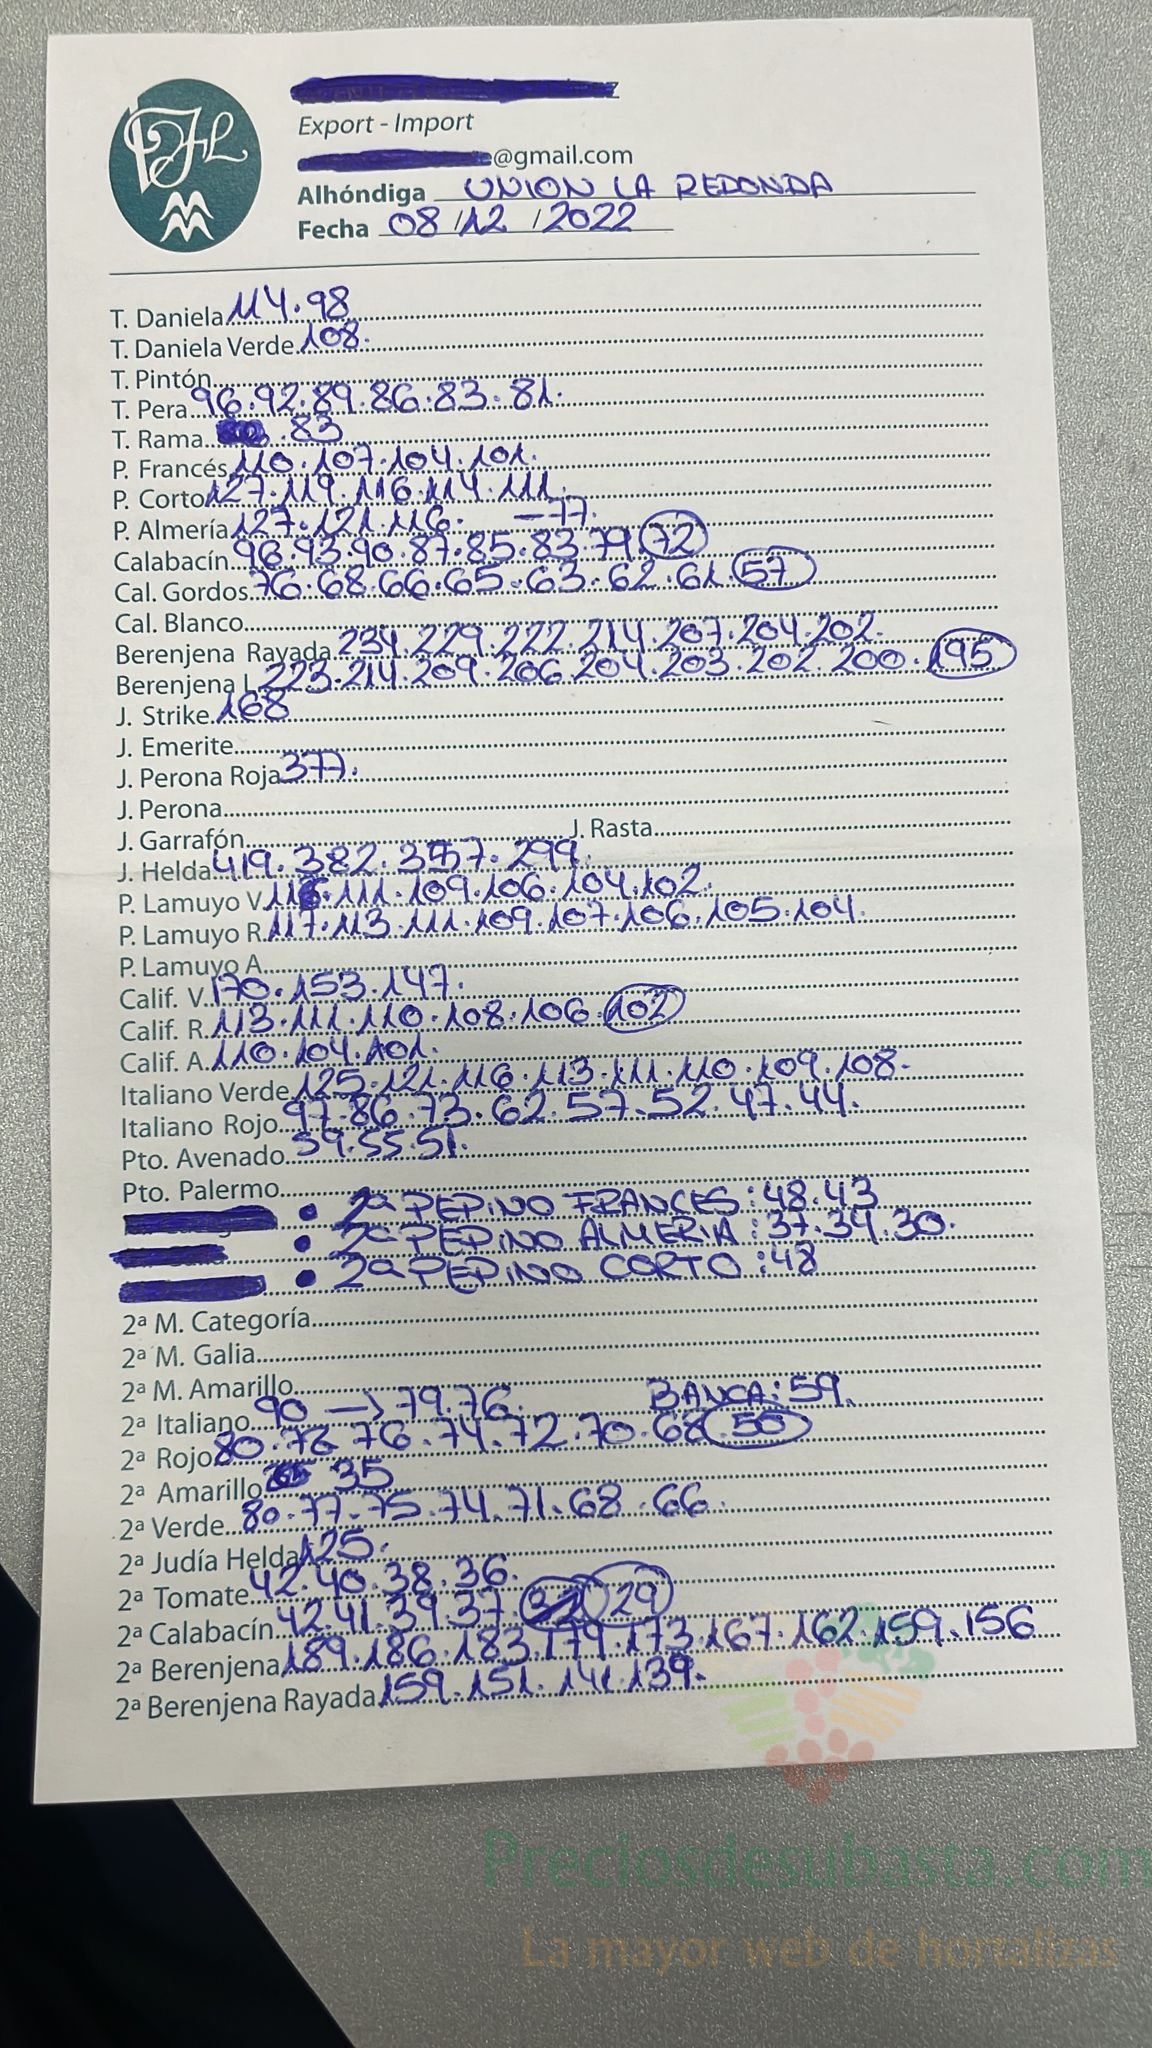 Export - Import
e@gmail.com
Alhóndiga UNION LA REDONDA
Fecha 08/12/2022
T. Daniela 114.98
T. Daniela Verde 108.
T. Pintón
T. Pera 96.92.89.86.83.81.
T. Rama .83
P. Francés 110.107.104.101.
P. Corto 127.119.116.114.111.
P. Almería 127.121.116. —77.
Calabacín 96.93.90.87.85.83.79.72
Cal. Gordos 76.68.66.65.63.62.61.57
Cal. Blanco
Berenjena Rayada 234.229.222.214.207.204.202.
Berenjena L 223.214.209.206.204.203.202.200.195
J. Strike 168
J. Emerite
J. Perona Roja 377.
J. Perona
J. Garrafón J. Rasta
J. Helda 419.382.357.299.
P. Lamuyo V .111.109.106.104.102.
P. Lamuyo R 117.113.111.109.107.106.105.104.
P. Lamuyo A
Calif. V. 170.153.147.
Calif. R. 113.111.110.108.106.102
Calif. A. 110.104.101.
Italiano Verde 125.121.116.113.111.110.109.108.
Italiano Rojo 97.86.73.62.57.52.47.44.
Pto. Avenado 59.55.51.
Pto. Palermo
• 2ª PEPINO FRANCES: 48.43
• 2ª PEPINO ALMERIA: 37.34.30.
• 2ª PEPINO CORTO: 48
2ª M. Categoría
2ª M. Galia
2ª M. Amarillo
2ª Italiano 90 → 79.76. BANCA: 59.
2ª Rojo 80.78 76.74.72.70.68.50
2ª Amarillo 35
2ª Verde 80.77.75.74.71.68.66.
2ª Judía Helda 125.
2ª Tomate 42.40.38.36.
2ª Calabacín 42.41.39.37. 29
2ª Berenjena 189.186.183.179.173.167.162.159.156
2ª Berenjena Rayada 159.151.141.139.
Preciosdesubasta.com
La mayor web de hortalizas